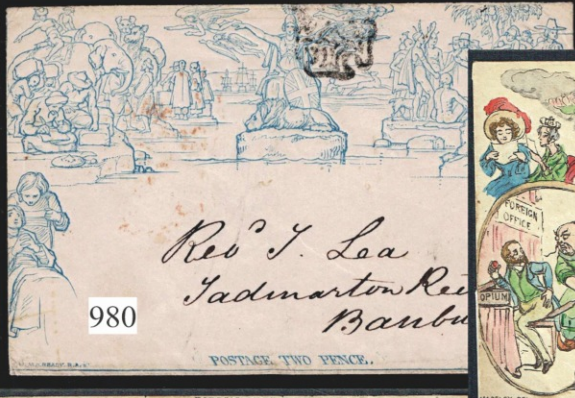 Revd T. Lea
Tadmarton
980
POSTAGE TWO PENCE.
FOREIGN
OFFICE
OPIUM